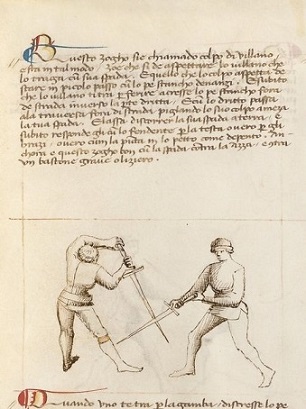 Questo zogho sie chiamado colpo di villano,
e sta in tal modo. Zoe che si de aspettare lo villano che
lo traga cum sua spada. E quello che lo colpo aspetta de'
stare in picolo passo cum lo pe' stancho denanzi. E subito
che lo villano ti tra per ferire acresse lo pe' stancho fora
de strada inverso la parte dritta. E cum lo dritto passa
ala traversa fora di strada pigliando lo suo colpo a meza
la tua spada. E lassa discorrer la sua spada a terra, e
subito respondegli cum lo fendente per la testa overo per gli
brazi, overo cum la punta in lo petto come depento. An
chora e questo zogho bon cum la spada contra la azza, contra
un bastone grave o liziero.
Quando uno te tra per la gamba, discresse lo pe'